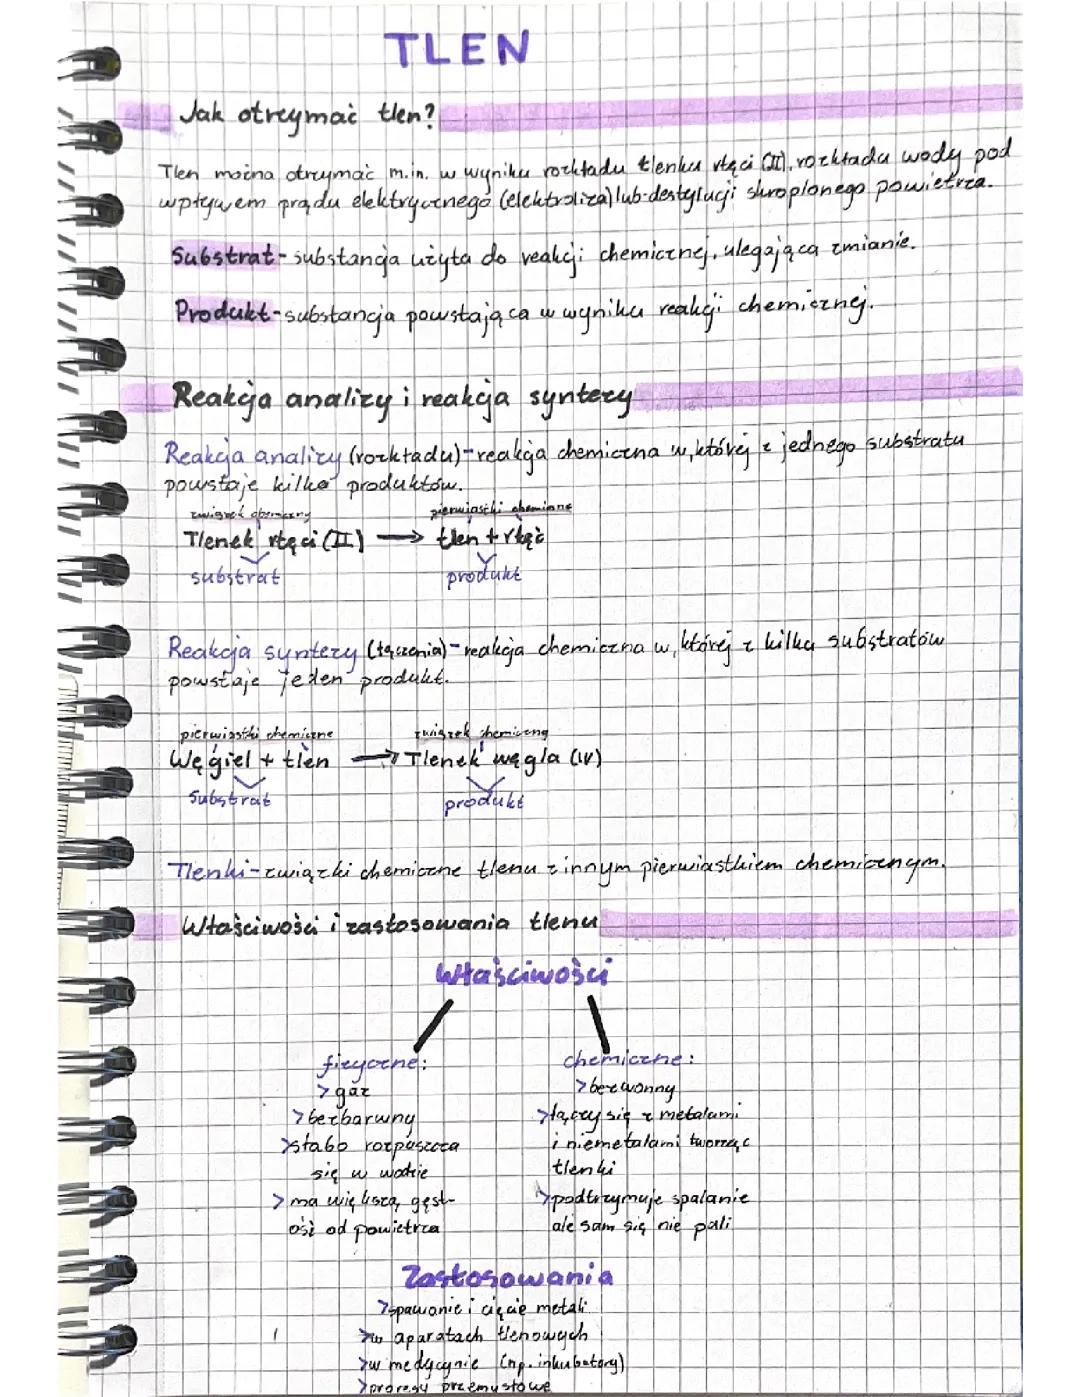 TLEN
Jak otrzymać tlen?
Tlen można otrzymać m.in. w wyniku rozkładu tlenku rtęci (II), rozkładu wody pod
wpływem prądu elektrycznego (elektroliza) lub destylacji skroplonego powietrza.
Substrat - substancja użyta do reakcji chemicznej, ulegająca zmianie.
Produkt - substancja powstająca w wyniku reakcji chemicznej.
Reakcja analizy i reakcja syntezy
Reakcja analizy (rozkładu) - reakcja chemiczna w której z jednego substratu
powstaje kilka produktów.
związek chemiczny pierwiastki chemiczne
Tlenek rtęci (II) → tlen + rtęć
substrat produkt
Reakcja syntezy (łączenia) - reakcja chemiczna w której z kilku substratów
powstaje jeden produkt.
pierwiastki chemiczne związek chemiczny
Węgiel + tlen → Tlenek węgla (IV)
Substrat produkt
Tlenki - związki chemiczne tlenu z innym pierwiastkiem chemicznym.
Właściwości i zastosowania tlenu
Właściwości
fizyczne: chemiczne:
> gaz > bezwonny
> bezbarwny > łączy się z metalami
> słabo rozpuszcza i niemetalami tworząc
się w wodzie tlenki
> ma większą gęst- > podtrzymuje spalanie
ość od powietrza ale sam się nie pali
Zastosowania
> spawanie i cięcie metali
> w aparatach tlenowych
> w medycynie (np. inkubatory)
> procesy przemysłowe